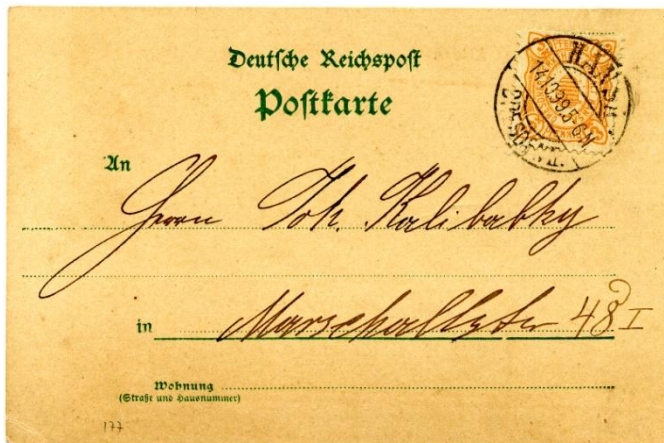 Deutsche Reichspost
Postkarte
HANSA
14.10.99.5-6N.
DRESDEN
An
Herrn Joh. Kalibabky
in Marschallstr 48 I
Wohnung
(Straße und Hausnummer)
177